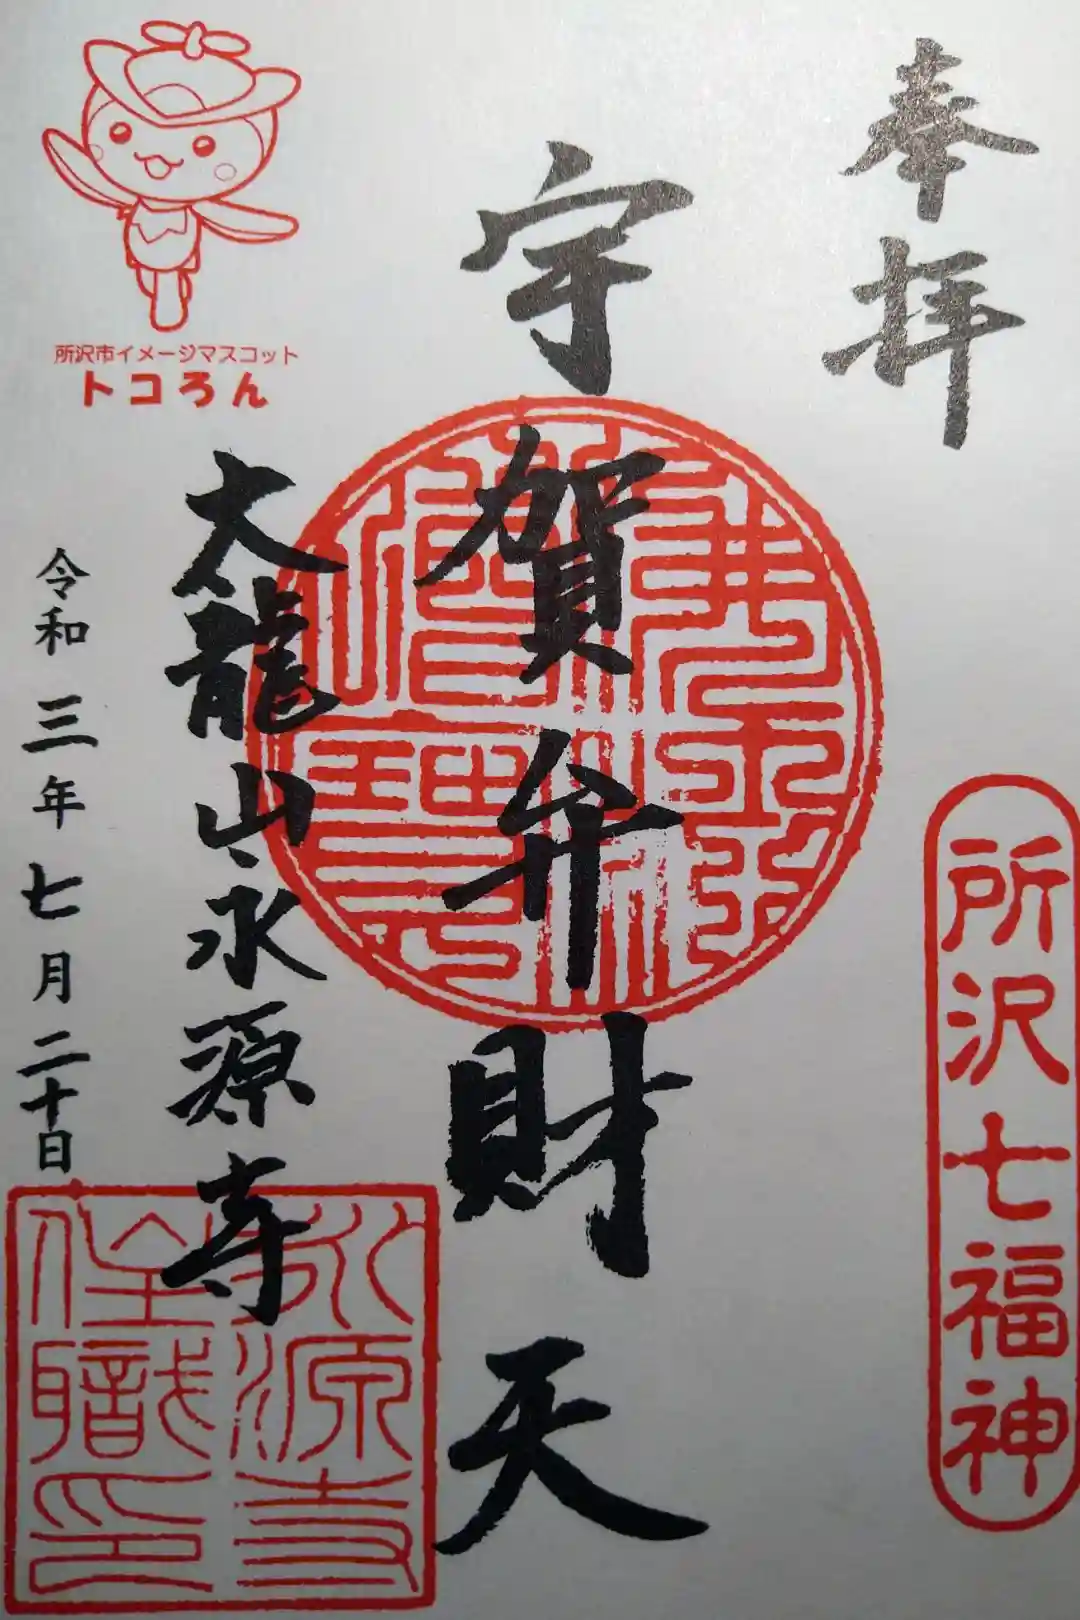 奉拝
所沢七福神
宇賀弁財天
太龍山永源寺
令和三年七月二十日
所沢市イメージマスコット
トコろん
永源寺
住職印